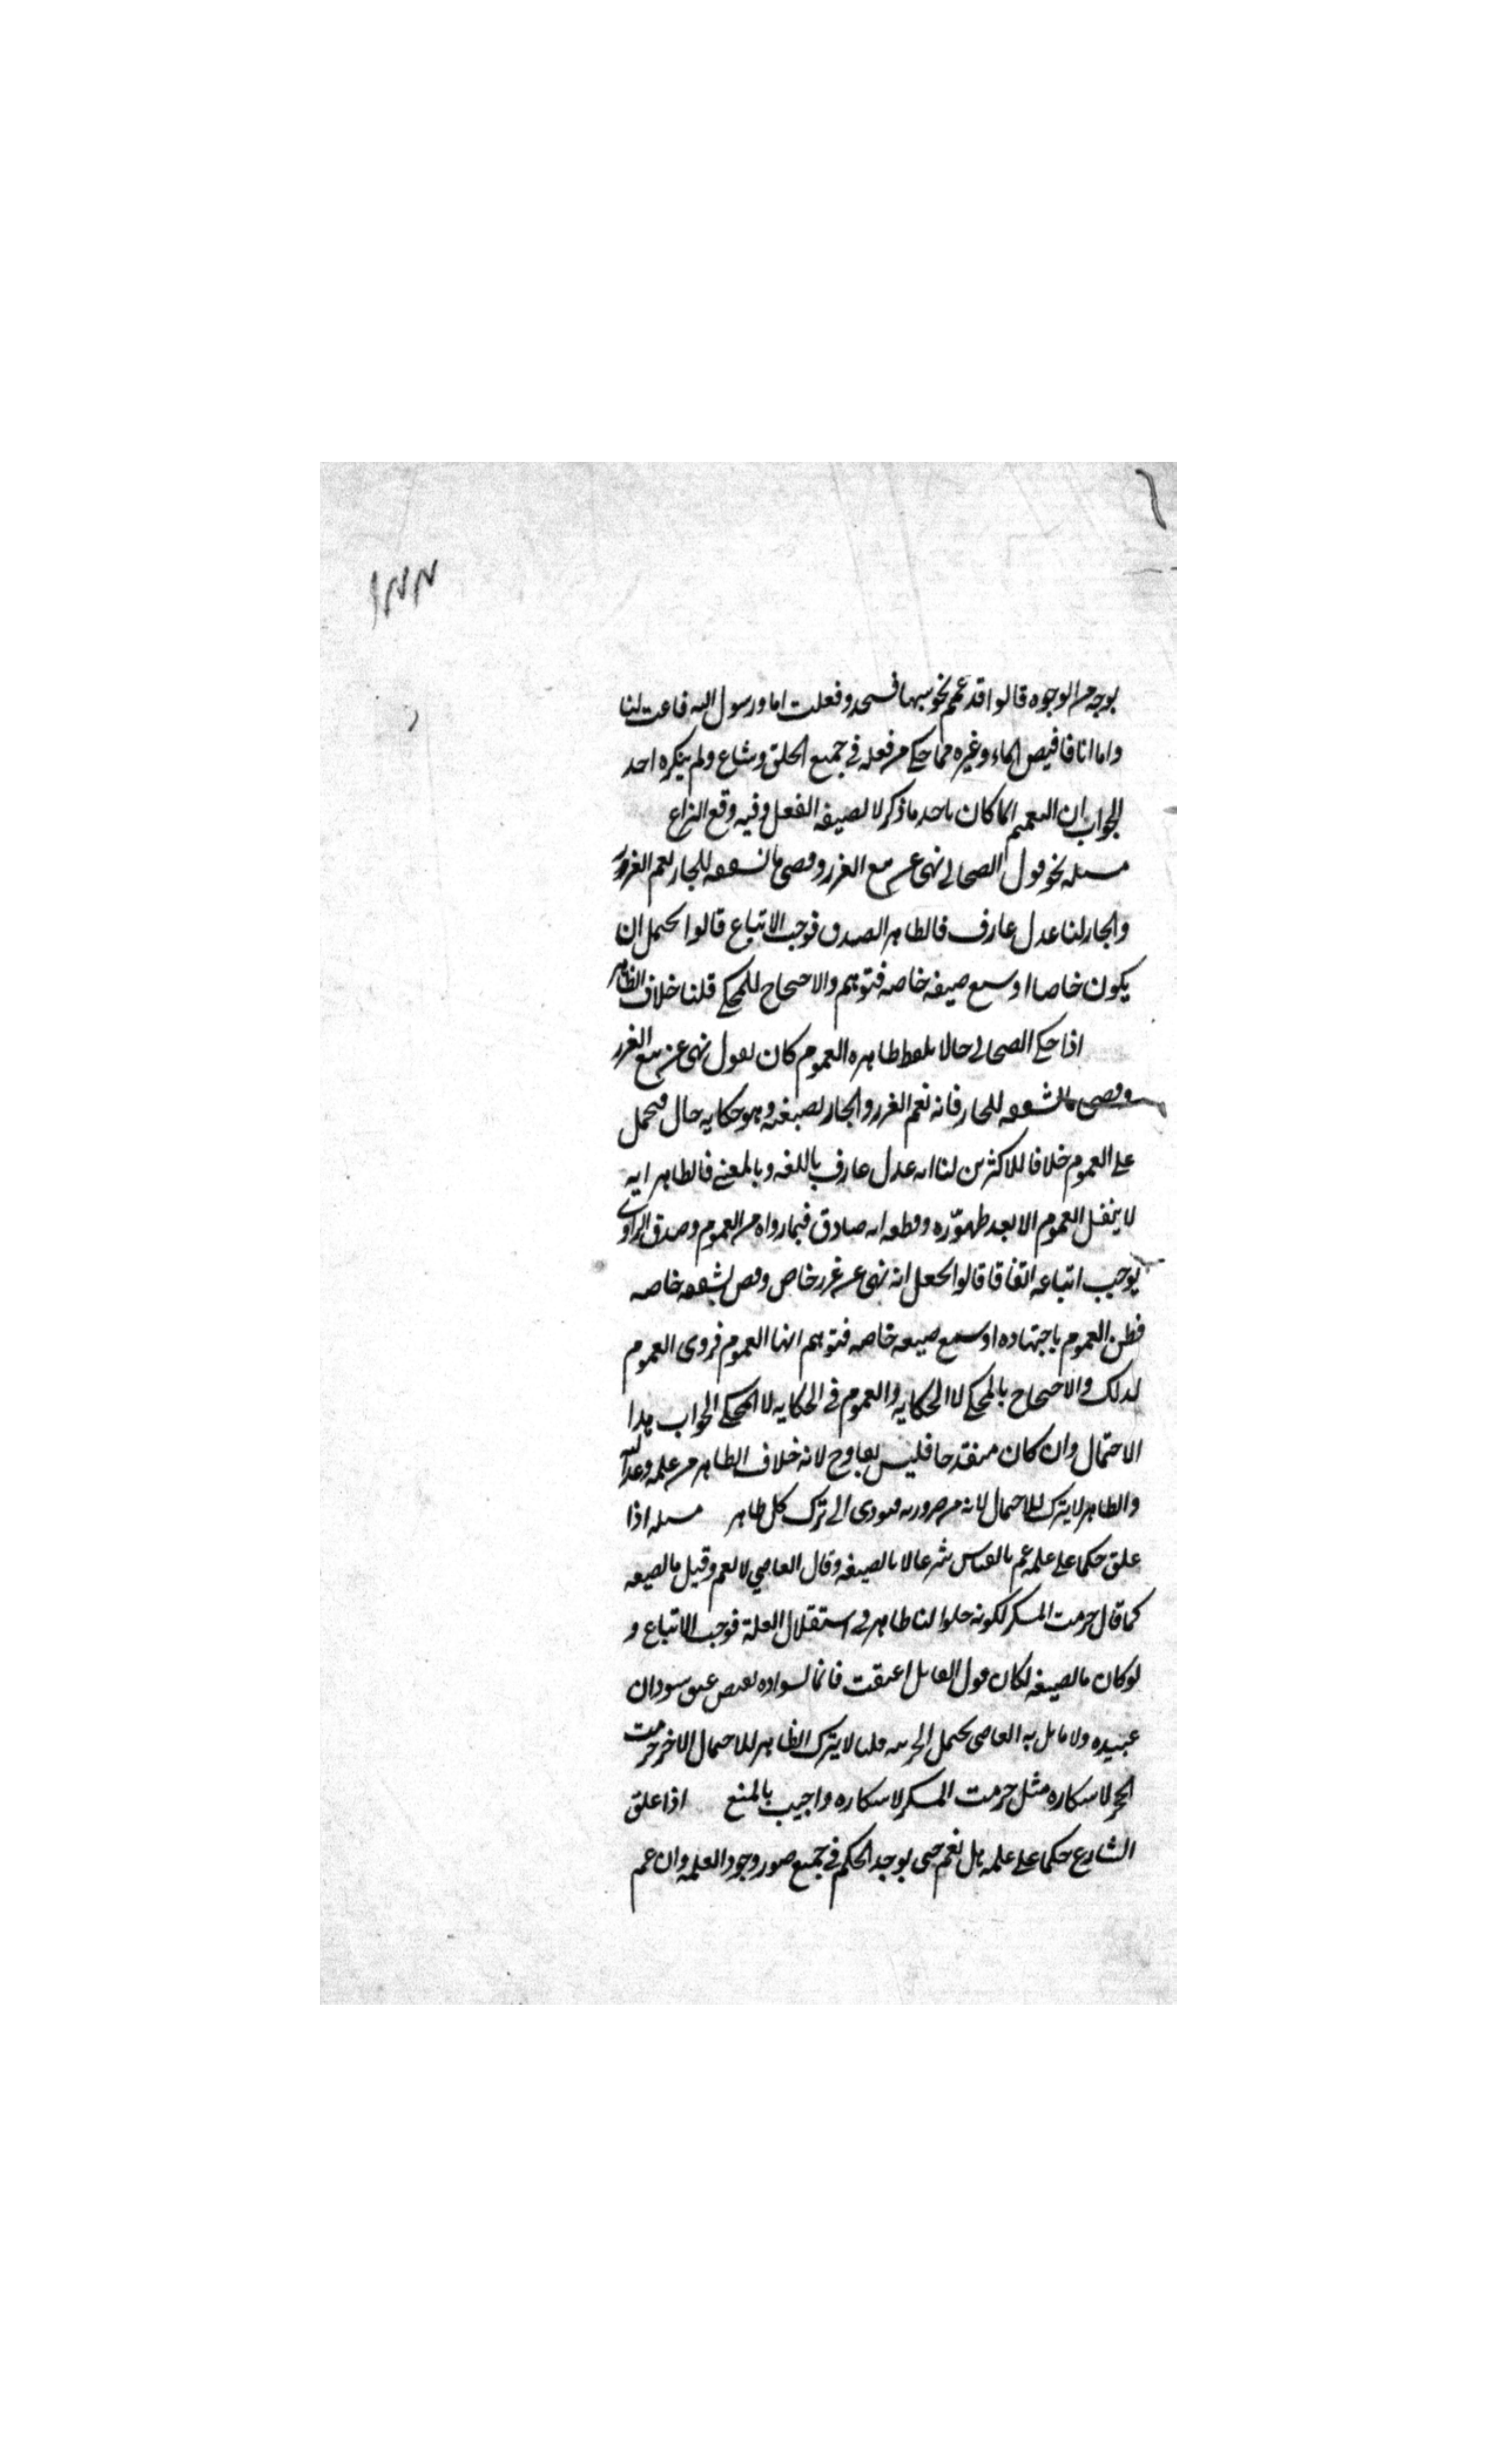 ١٣٣
بوجه من الوجوه قالوا قد عمم نحو سها فسجد وفعلت انا ورسول الله فاغتسلنا
واما انا فافيض الماء وغيره مما حكي من فعله في جميع الخلق وشاع ولم ينكره احد
الجواب ان التعميم انما كان باحد ما ذكر لا لصيغة الفعل وفيه وقع النزاع
مسله نحو قول الصحابي نهى عن بيع الغرر وقضى بالشفعة للجار يعم الغرر
والجار لنا عدل عارف فالظاهر الصدق فوجب الاتباع قالوا يحتمل ان
يكون خاصا او سمع صيغه خاصه فتوهم والاحتجاج للمحكي قلنا خلاف الظاهر
اذا حكى الصحابي حالا بلفظ ظاهره العموم كان يقول نهى عن بيع الغرر
وقضى بالشفعه للجار فانه يعم الغرر والجار بصيغته وهو حكايه حال فيحمل
على العموم خلافا للاكثرين لنا انه عدل عارف باللغه وبالمعنى فالظاهر انه
لا ينقل العموم الا بعد ظهوره وقطعه انه صادق فيما رواه من العموم وصدق الراوي
يوجب اتباعه اتفاقا قالوا لعله انه نهى عن غرر خاص وقضى بشفعه خاصه
فظن العموم باجتهاده او سمع صيغه خاصه فتوهم انها العموم فروى العموم
لذلك والاحتجاج بالمحكي لا الحكايه والعموم في الحكايه لا المحكي الجواب هذا
الاحتمال وان كان منقدحا فليس بقادح لانه خلاف الظاهر من علمه وعدالته
والظاهر لا يترك للاحتمال لانه من ضرورته فيودي الى ترك كل ظاهر مسله اذا
علق حكما على علة عم بالقياس شرعا لا بالصيغه وقال القاضي لا يعم وقيل بالصيغه
كما قال حرمت المسكر لكونه حلوا لنا ظاهر في استقلال العلة فوجب الاتباع و
لو كان بالصيغه لكان قول القائل اعتقت غانما لسواده يقتضي عتق سودان
عبيده ولا قائل به القاضي يحتمل الجزئيه قلنا لا يترك الظاهر للاحتمال الاخر حرمت
الخمر لاسكاره مثل حرمت المسكر لاسكاره واجيب بالمنع اذا علق
الشارع حكما على علة هل تعم حتى يوجد الحكم في جميع صور وجود العله وان عم